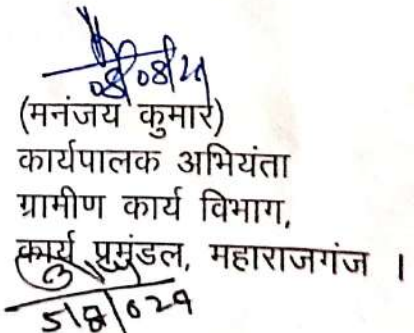 08/08/24
(मनंजय कुमार)
कार्यपालक अभियंता
ग्रामीण कार्य विभाग,
कार्य प्रमंडल, महाराजगंज ।